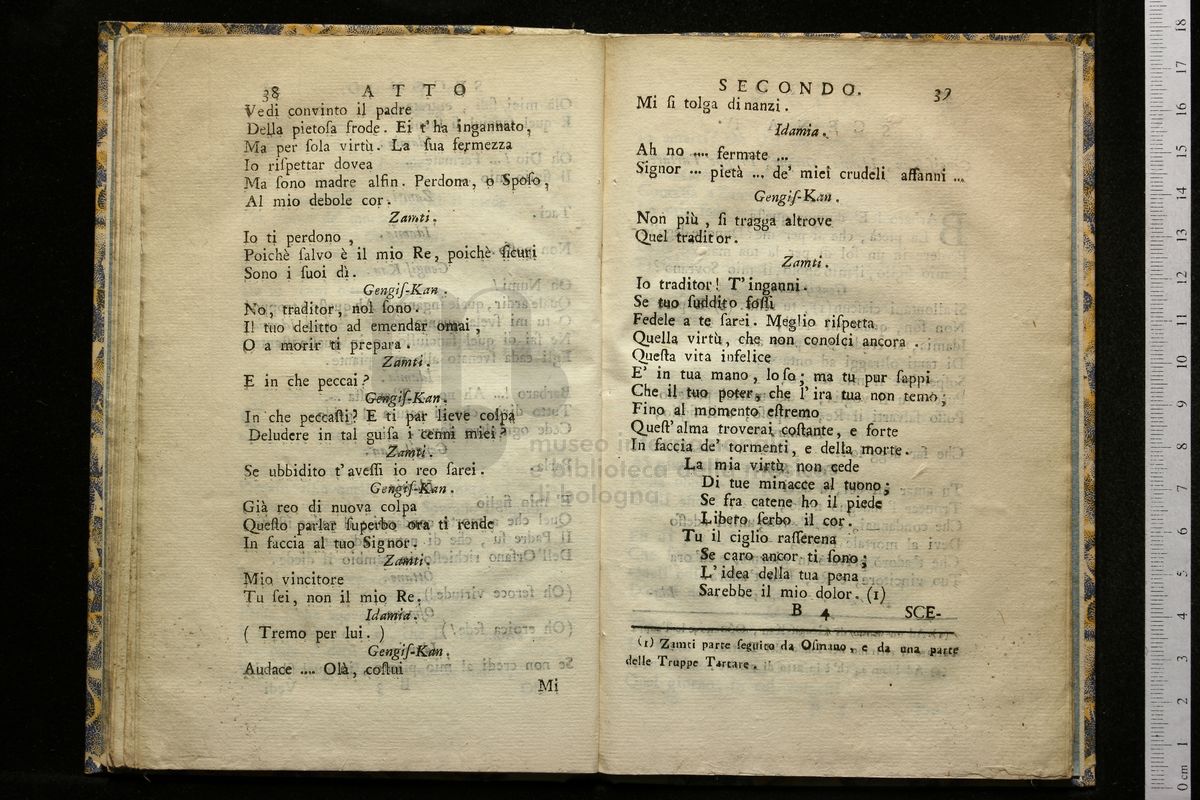 38 ATTO
Vedi convinto il padre
Della pietoſa frode. Ei t'ha ingannato,
Ma per ſola virtù. La ſua fermezza
Io riſpettar dovea
Ma ſono madre alfin. Perdona, o Spoſo,
Al mio debole cor.
Zamti.
Io ti perdono,
Poichè ſalvo è il mio Re, poichè ſicuri
Sono i ſuoi dì.
Gengiſ-Kan.
No, traditor, nol ſono.
Il tuo delitto ad emendar omai,
O a morir ti prepara.
Zamti.
E in che peccai?
Gengiſ-Kan.
In che peccaſti? E ti par lieve colpa
Deludere in tal guiſa i cenni miei?
Zamti.
Se ubbidito t'aveſſi io reo ſarei.
Gengiſ-Kan.
Già reo di nuova colpa
Queſto parlar ſuperbo ora ti rende
In faccia al tuo Signor.
Zamti.
Mio vincitore
Tu ſei, non il mio Re.
Idamia.
( Tremo per lui. )
Gengiſ-Kan.
Audace .... Olà, coſtui
Mi
SECONDO. 39
Mi ſi tolga dinanzi.
Idamia.
Ah no .... fermate ...
Signor ... pietà ... de' miei crudeli affanni ...
Gengiſ-Kan.
Non più, ſi tragga altrove
Quel traditor.
Zamti.
Io traditor! T'inganni.
Se tuo ſuddito foſſi
Fedele a te ſarei. Meglio riſpetta
Quella virtù, che non conoſci ancora.
Queſta vita infelice
E' in tua mano, lo ſo; ma tu pur ſappi
Che il tuo poter, che l'ira tua non temo;
Fino al momento eſtremo
Queſt'alma troverai coſtante, e forte
In faccia de' tormenti, e della morte.
La mia virtù non cede
Di tue minacce al tuono;
Se fra catene ho il piede
Libero ſerbo il cor.
Tu il ciglio raſſerena
Se caro ancor ti ſono;
L'idea della tua pena
Sarebbe il mio dolor. (1)
B 4 SCE-
(1) Zamti parte ſeguito da Oſmano, e da una parte
delle Truppe Tartare.